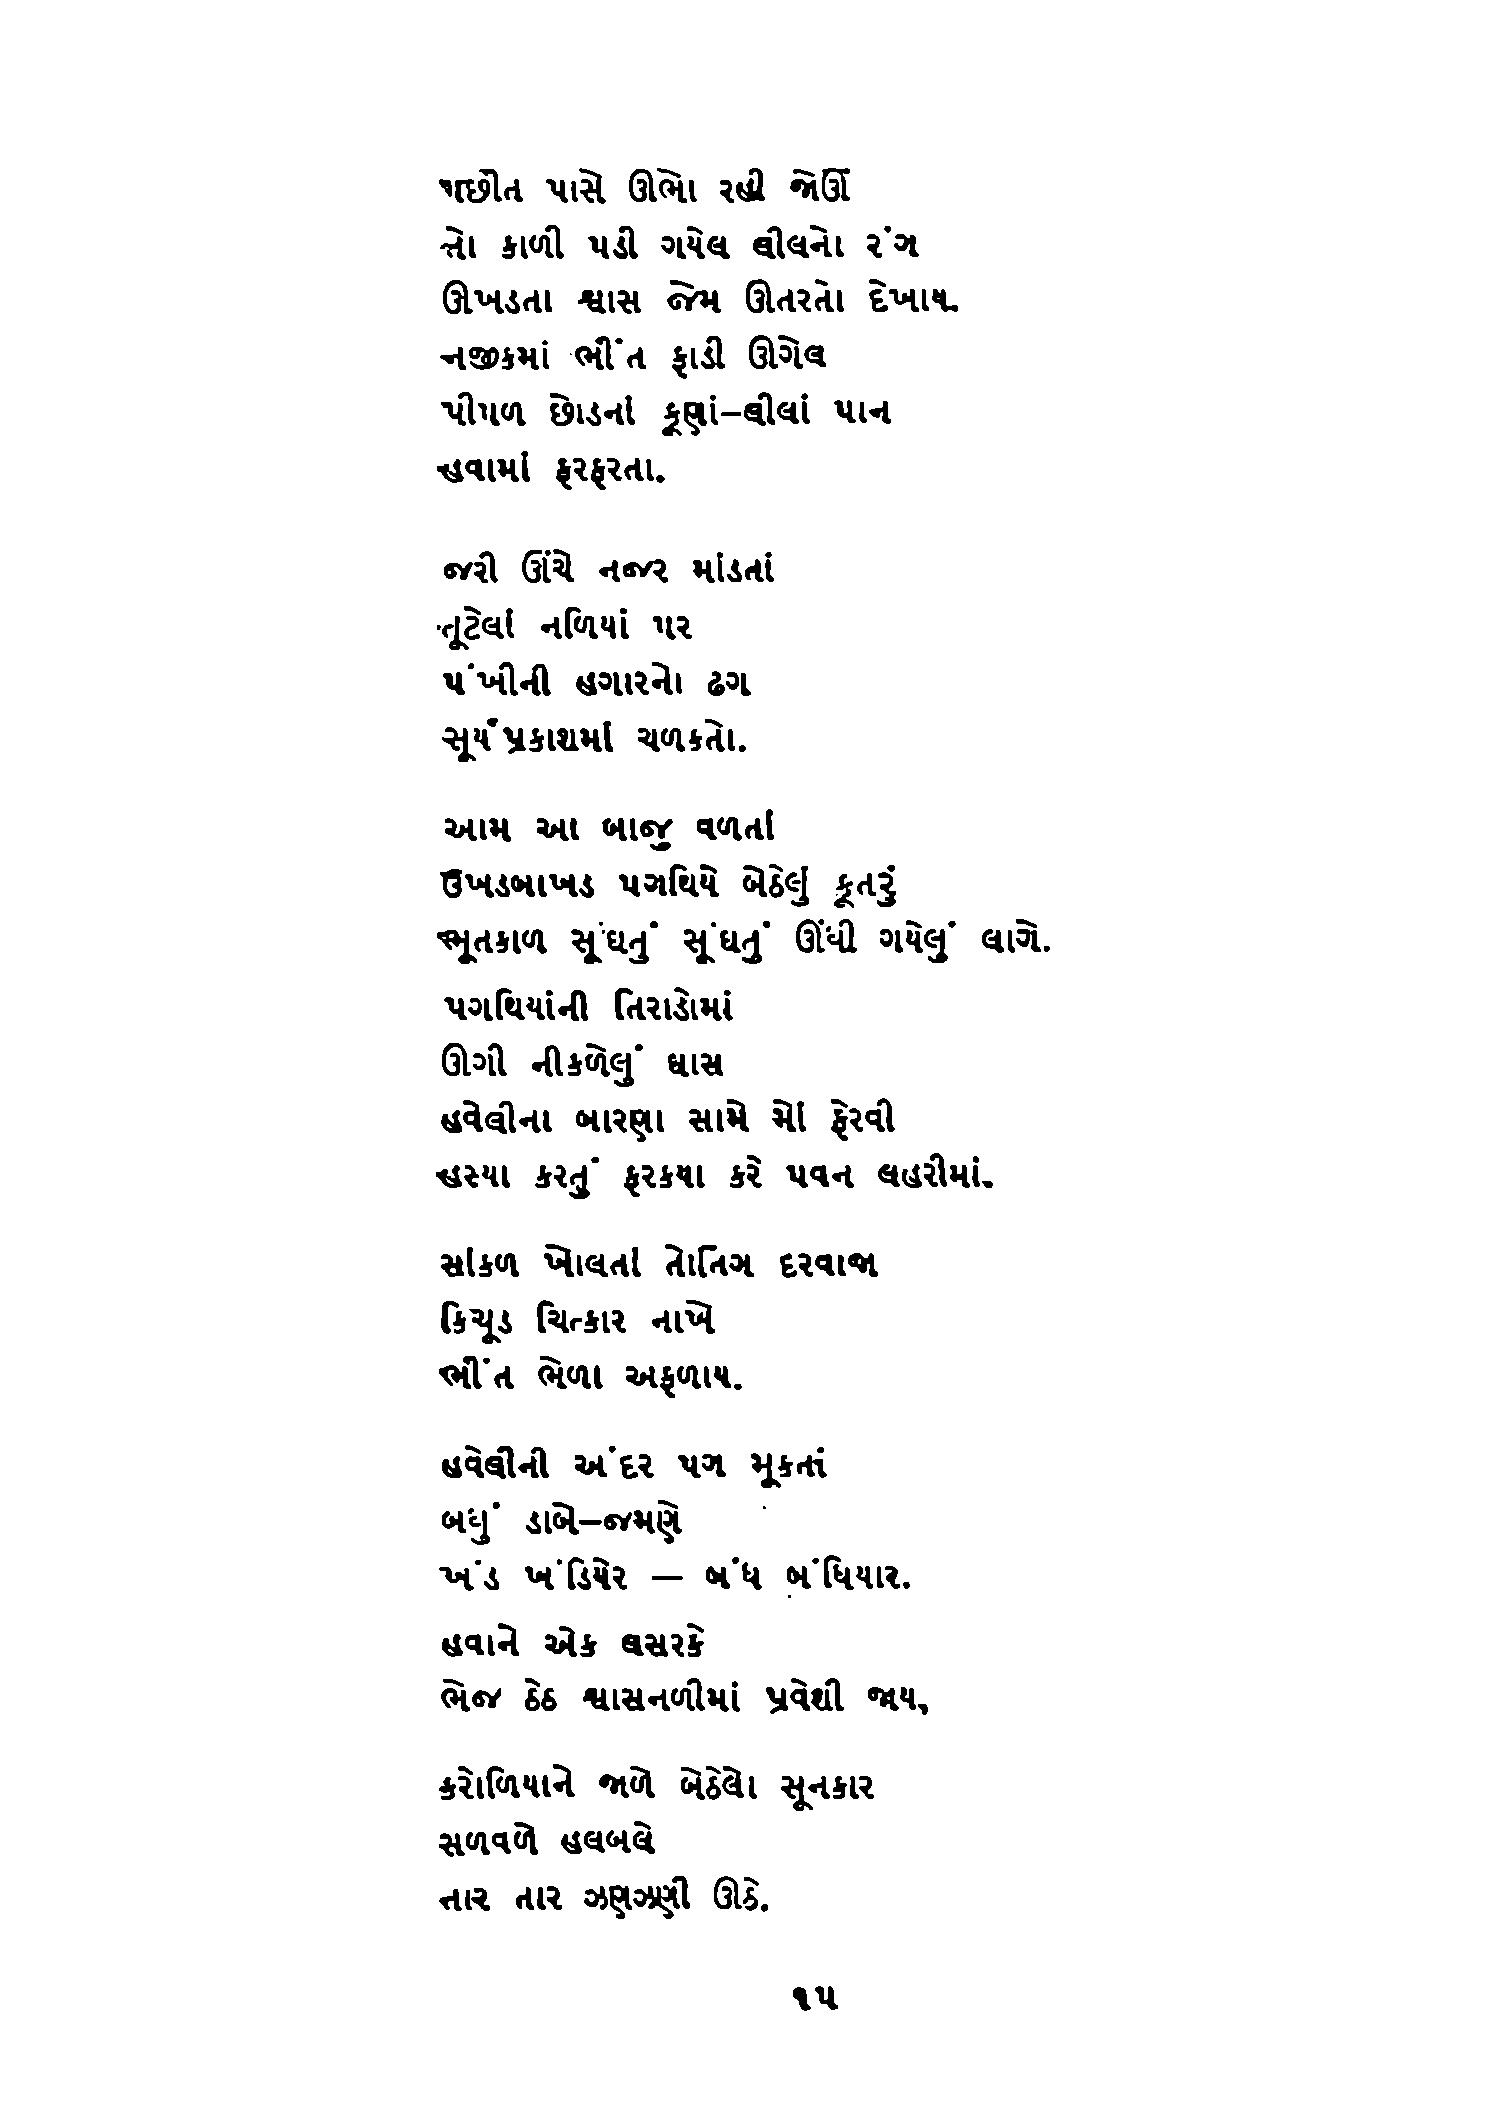 પછીત પાસે ઊભો રહી જોઉં
તો કાળી પડી ગયેલ લીલનો રંગ
ઊખડતા શ્વાસ જેમ ઊતરતો દેખાય.
નજીકમાં ભીંત ફાડી ઊગેલ
પીપળ છોડનાં કૂણાં–લીલાં પાન
હવામાં ફરફરતા.
જરી ઊંચે નજર માંડતાં
તૂટેલાં નળિયાં પર
પંખીની હગારનો ઢગ
સૂર્યપ્રકાશમાં ચળકતો.
આમ આ બાજુ વળતાં
ઉખડબાખડ પગથિયે બેઠેલું કૂતરું
ભૂતકાળ સૂંઘતું સૂંઘતું ઊંઘી ગયેલું લાગે.
પગથિયાંની તિરાડોમાં
ઊગી નીકળેલું ઘાસ
હવેલીના બારણા સામે મોં ફેરવી
હસ્યા કરતું ફરકયા કરે પવન લહરીમાં.
સાંકળ ખોલતાં તોતિંગ દરવાજા
કિચૂડ ચિત્કાર નાખે
ભીંત ભેળા અફળાય.
હવેલીની અંદર પગ મૂકતાં
બધું ડાબે–જમણે
ખંડ ખંડિયેર — બંધ બંધિયાર.
હવાને એક લસરકે
ભેજ ઠેઠ શ્વાસનળીમાં પ્રવેશી જાય,
કરોળિયાને જાળે બેઠેલો સૂનકાર
સળવળે હલબલે
તાર તાર ઝણઝણી ઊઠે.
૧૫